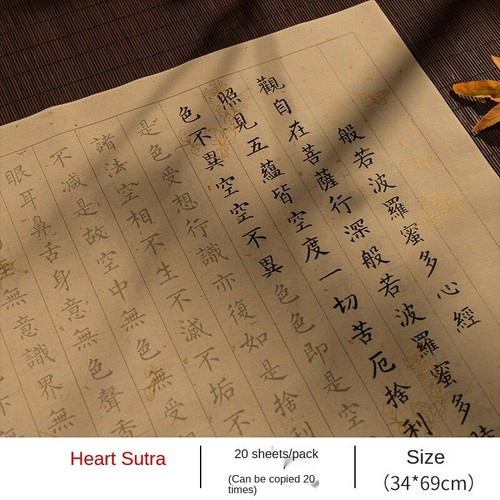 般若波羅蜜多心經
觀自在菩薩行深般若波羅蜜多時
照見五蘊皆空度一切苦厄捨利
色不異空空不異色色即是空
是色受想行識亦復如是捨利
諸法空相不生不滅不垢不
不減是故空中無色無受
眼耳鼻舌身意無色聲香
無意識界無
Heart Sutra
20 sheets/pack
(Can be copied 20
times)
Size
(34*69cm)